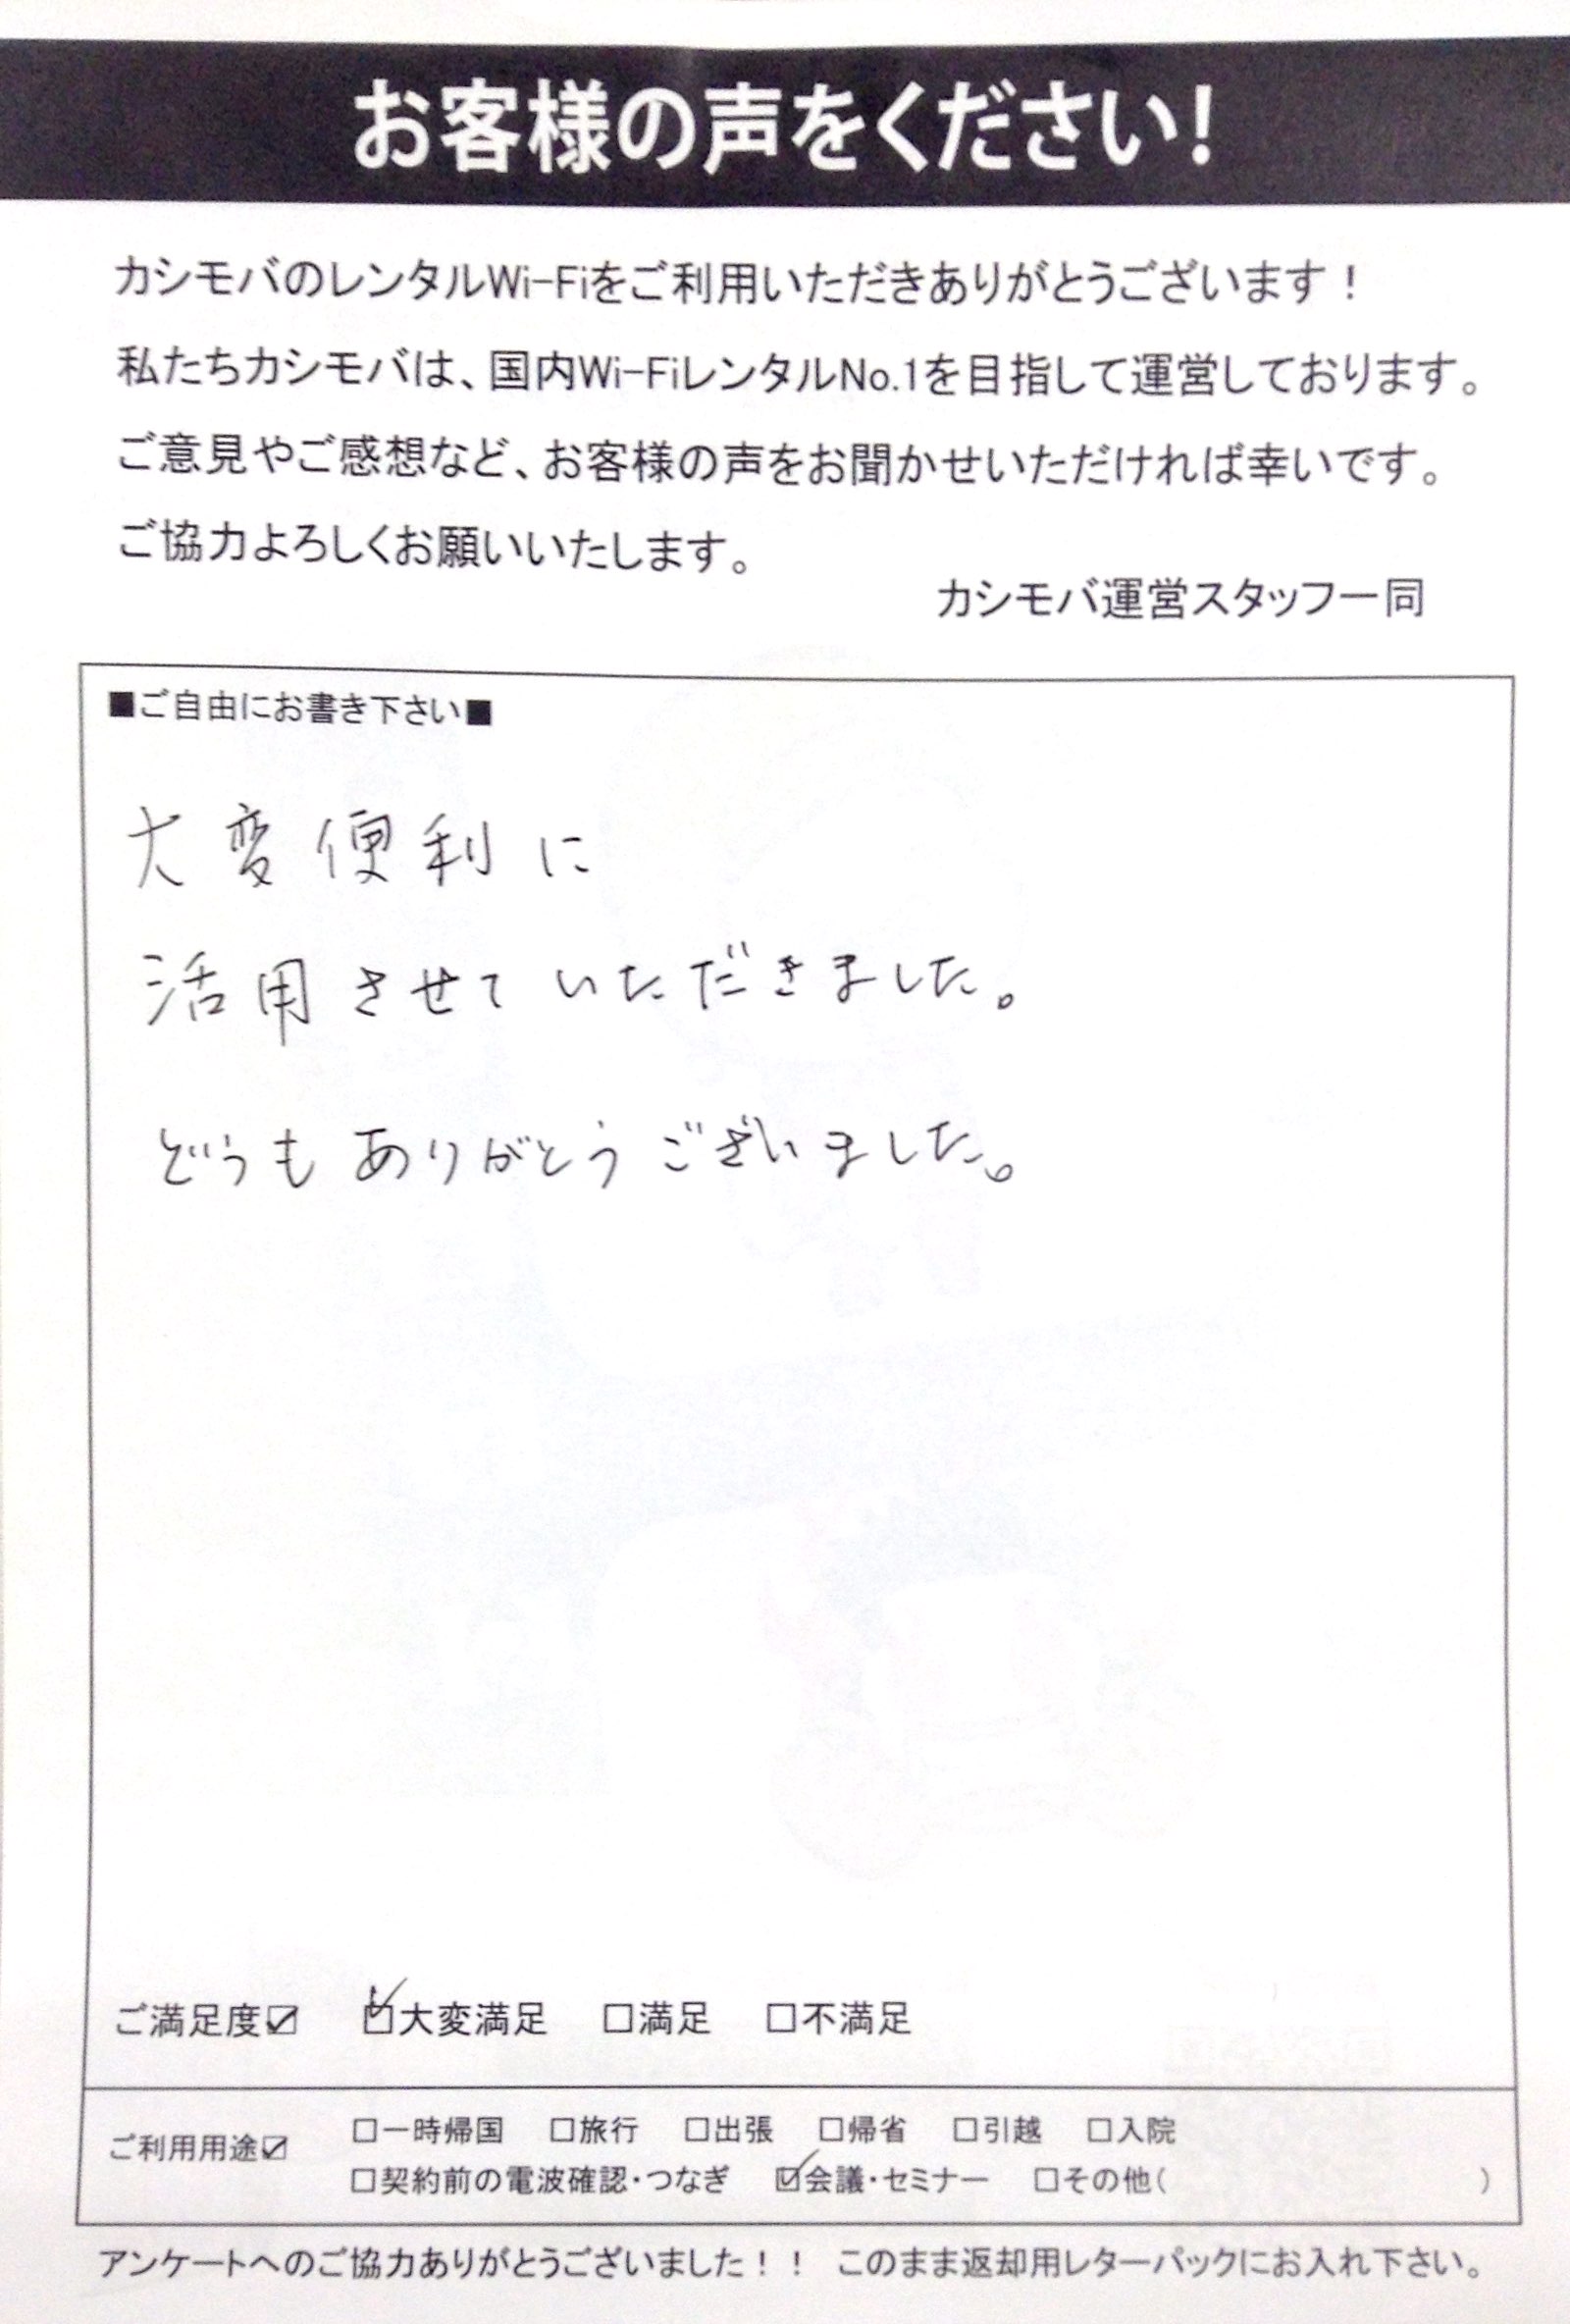 お客様の声をください!
カシモバのレンタルWi-Fiをご利用いただきありがとうございます！
私たちカシモバは、国内Wi-FiレンタルNo.1を目指して運営しております。
ご意見やご感想など、お客様の声をお聞かせいただければ幸いです。
ご協力よろしくお願いいたします。
カシモバ運営スタッフ一同
■ご自由にお書き下さい■
大変便利に
活用させていただきました。
どうもありがとうございました。
ご満足度☑ ☑大変満足 □満足 □不満足
ご利用用途☑ □一時帰国 □旅行 □出張 □帰省 □引越 □入院
□契約前の電波確認・つなぎ ☑会議・セミナー □その他( )
アンケートへのご協力ありがとうございました！！ このまま返却用レターパックにお入れ下さい。